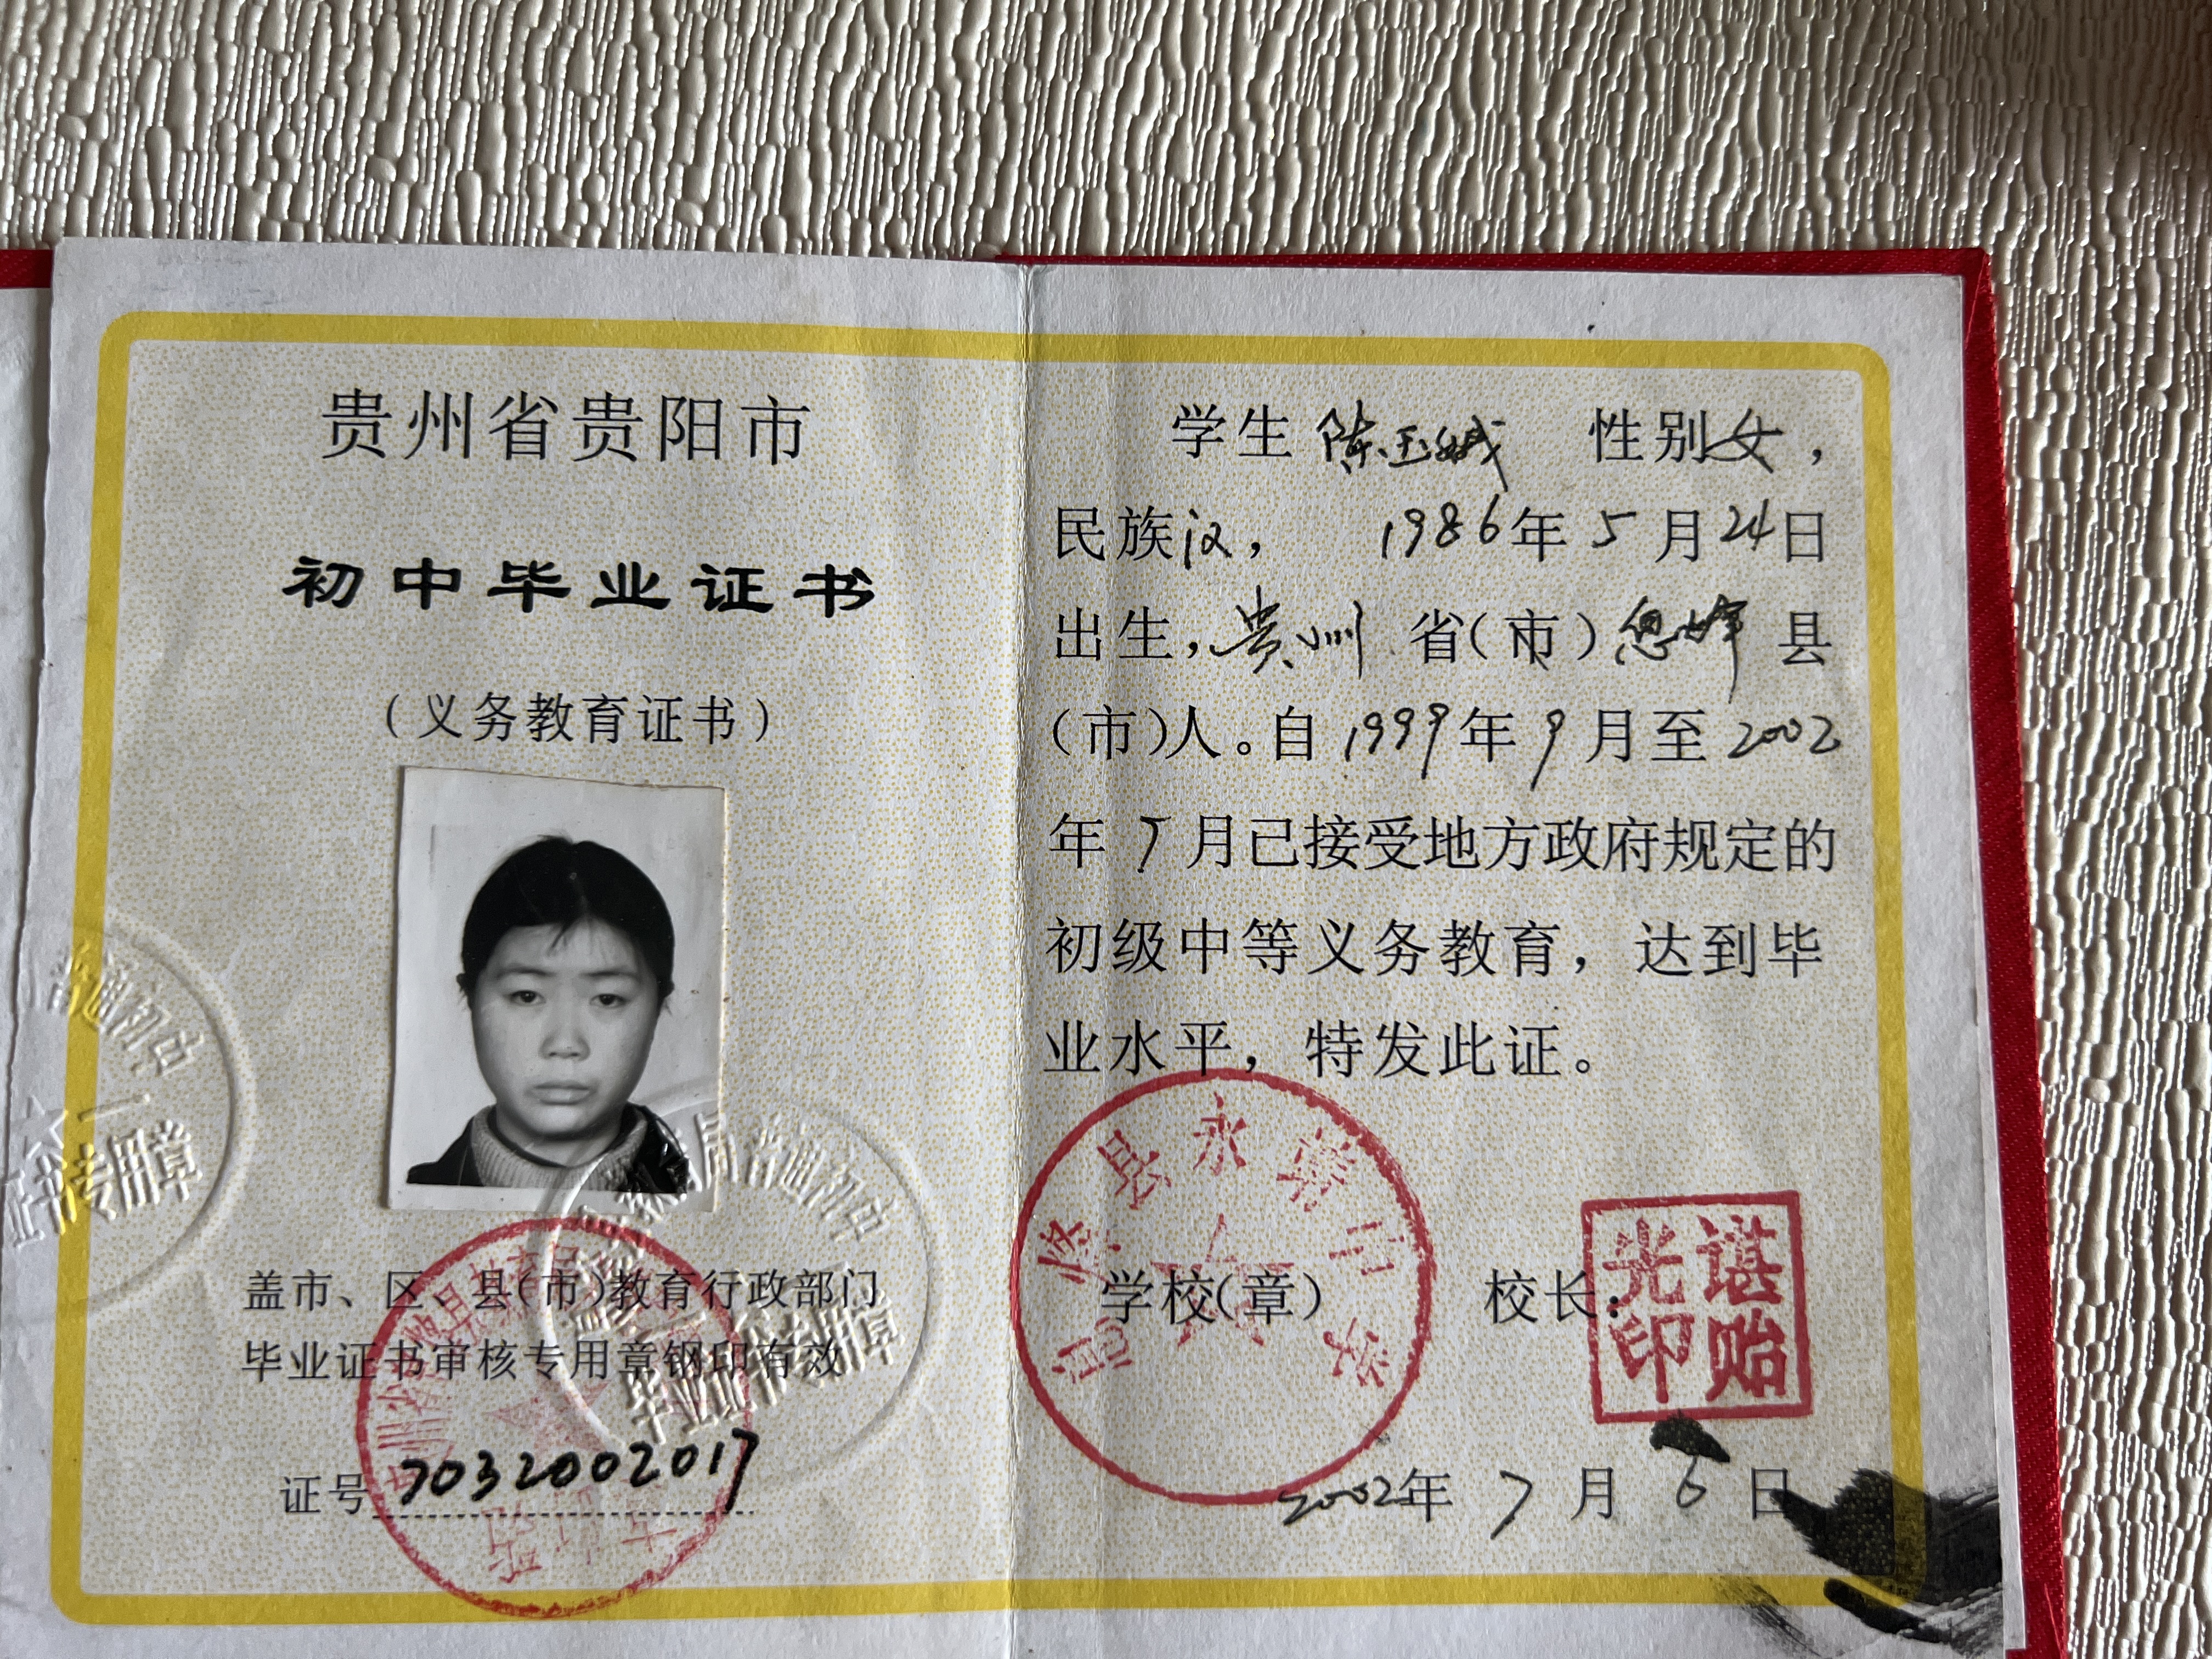 贵州省贵阳市
初中毕业证书
（义务教育证书）
普通初中
证书专用章
局普通初中
毕业证书专用章
盖市、区、县(市)教育行政部门
毕业证书审核专用章钢印有效
证号 7032002017
学生 陈玉娥 性别女，
民族汉， 1986年5月24日
出生，贵州 省(市)息烽 县
(市)人。自1999年9月至2002
年7月已接受地方政府规定的
初级中等义务教育，达到毕
业水平，特发此证。
息烽县永靖中学
学校(章) 校长：
谌贻光印
2002年7月6日